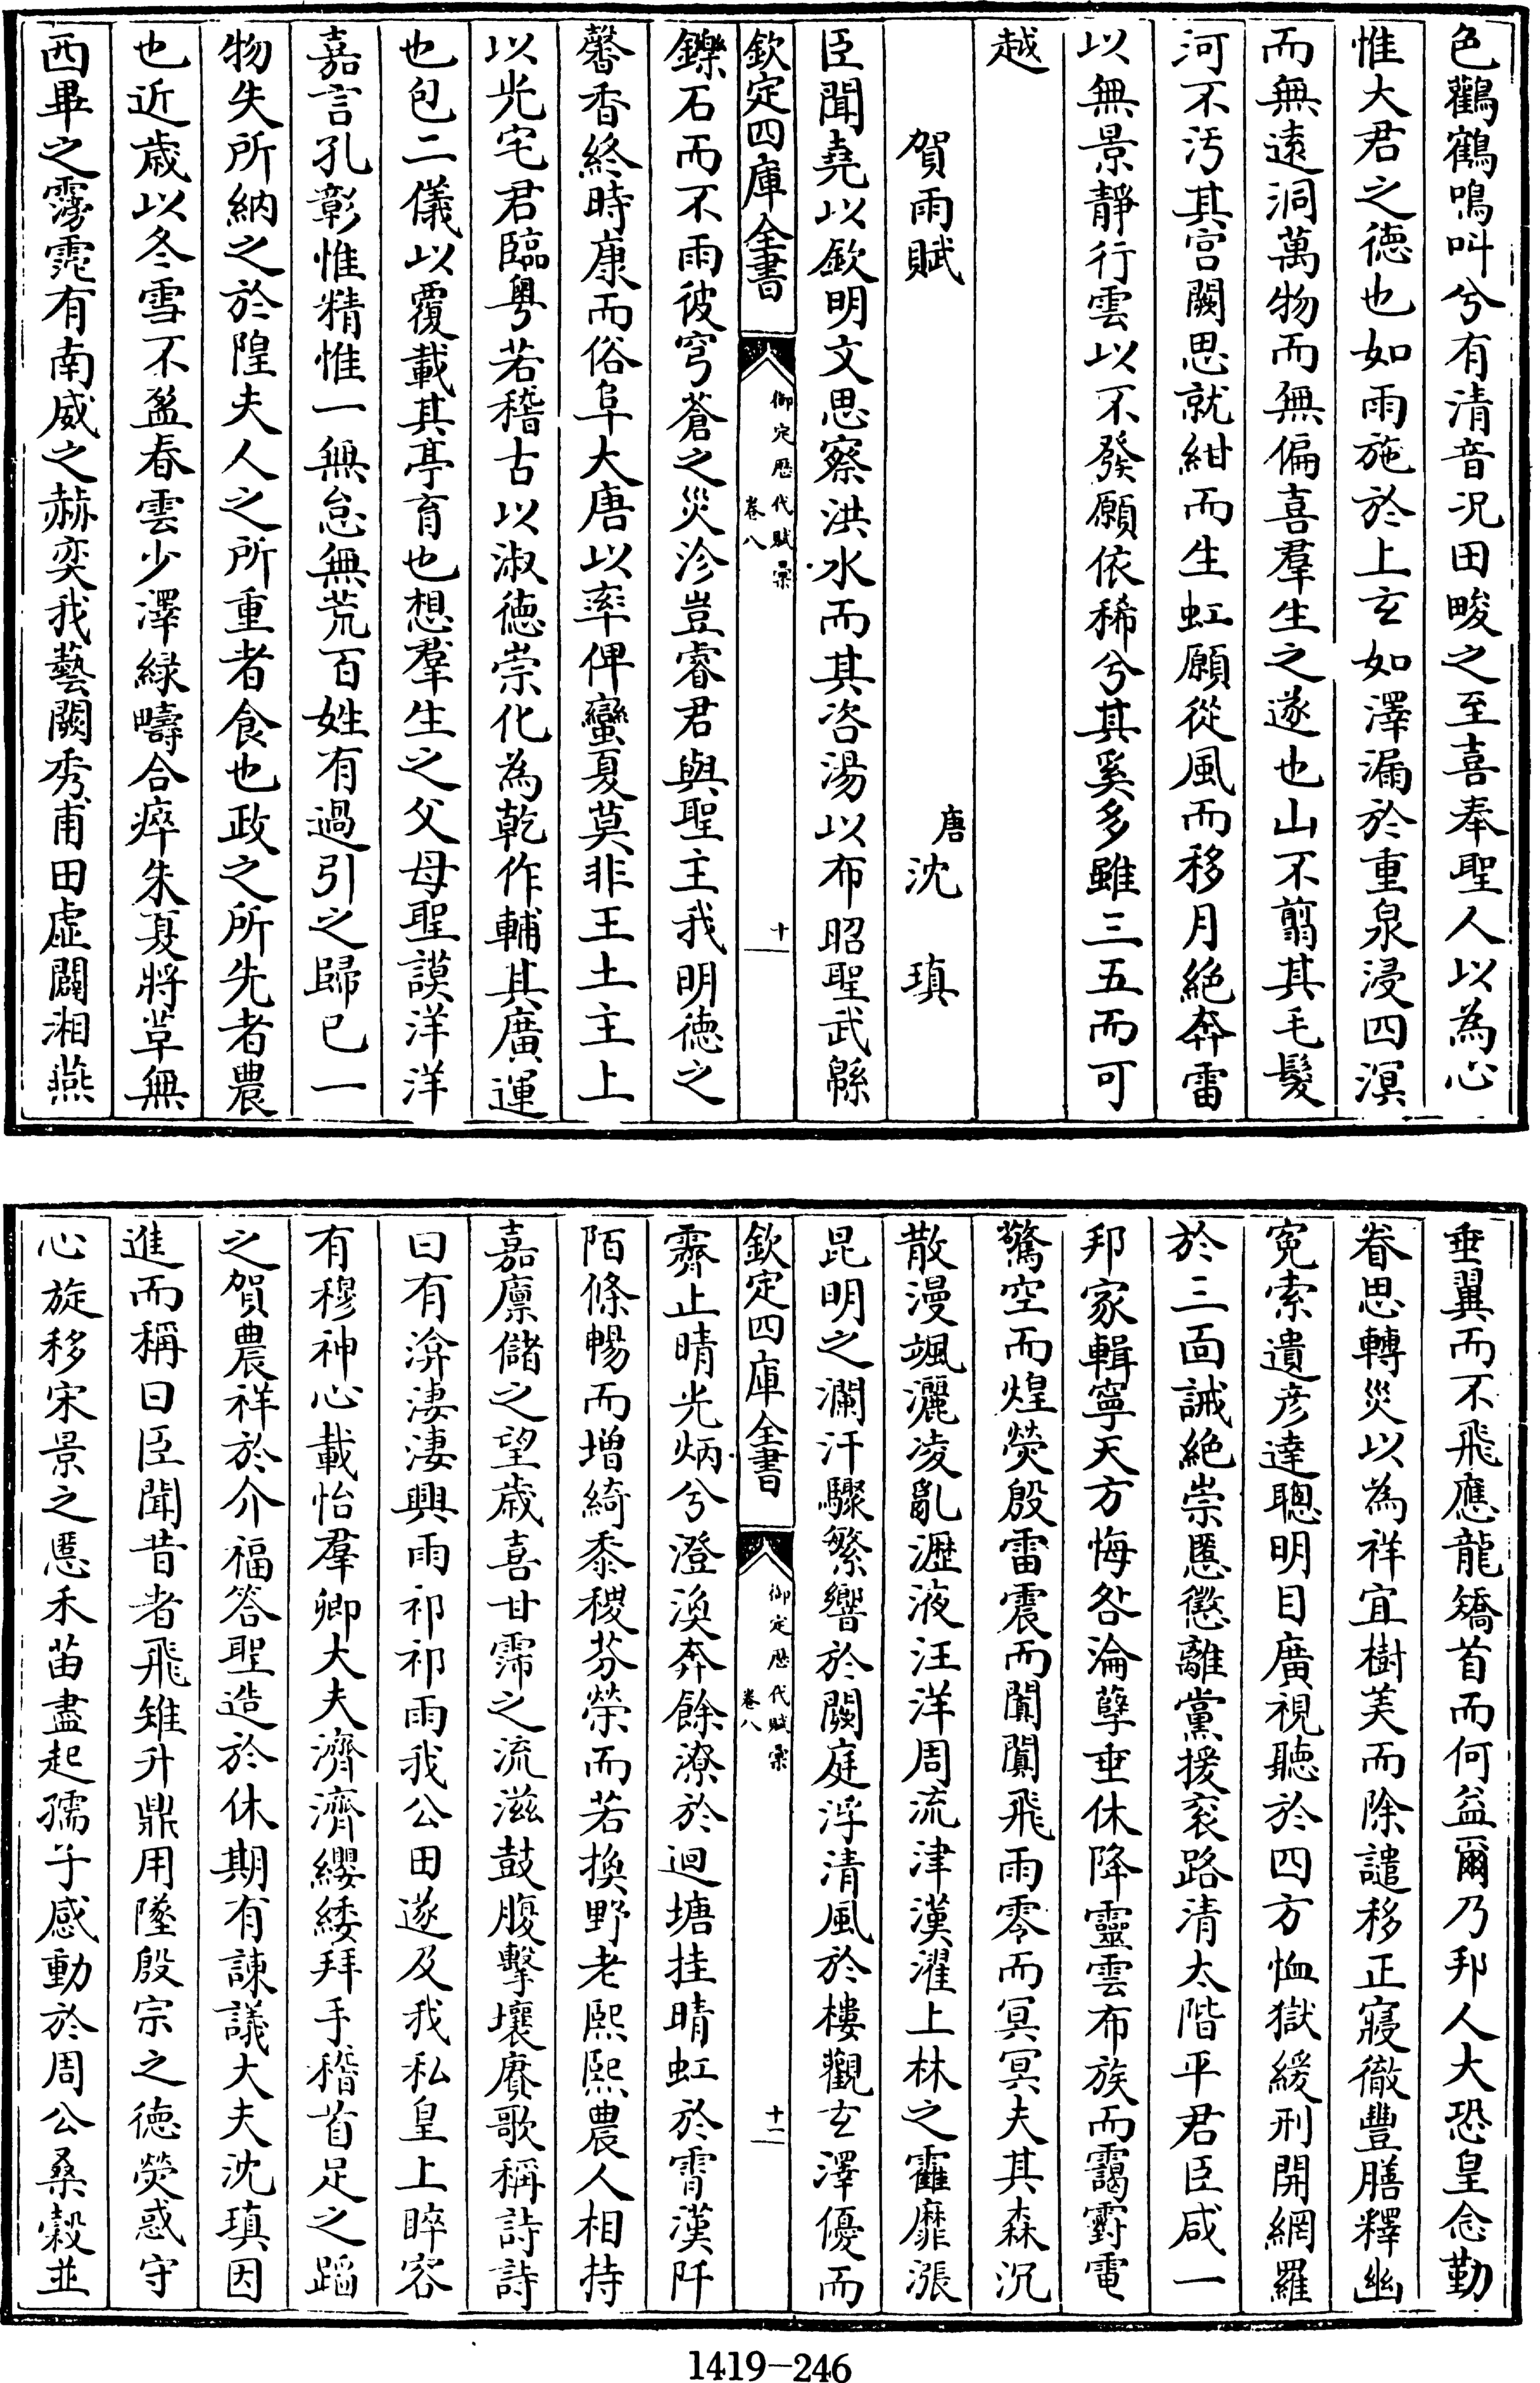 色鸛鶴鳴叫兮有清音況田畯之至喜奉聖人以為心
惟大君之徳也如雨施於上玄如澤漏於重泉浸四溟
而無遠洞萬物而無偏喜羣生之遂也山不翦其毛髮
河不污其宫闕思就紺而生虹願從風而移月絶奔雷
以無景靜行雲以不發願依稀兮其奚多雖三五而可
越
賀雨賦
唐沈瑱
臣聞堯以欽明文思察洪水而其咨湯以布昭聖武緜
欽定四庫全書
御定厯代賦彚
卷八
十
鑠石而不雨彼穹蒼之災沴豈睿君與聖主我明徳之
馨香終時康而俗阜大唐以率俾蠻夏莫非王土主上
以光宅君臨粤若稽古以淑徳崇化為乾作輔其廣運
也包二儀以覆載其亭育也想羣生之父母聖謨洋洋
嘉言孔彰惟精惟一無怠無荒百姓有過引之歸已一
物失所納之於隍夫人之所重者食也政之所先者農
也近歳以冬雪不盈春雲少澤緑疇合瘁朱夏將草無
西畢之霶霓有南威之赫奕我藝闕秀甫田虚闢湘燕
垂翼而不飛應龍矯首而何益爾乃邦人大恐皇念勤
眷思轉災以為祥宜樹美而除譴移正寢徹豐膳釋幽
寃索遺彦達聰明目廣視聽於四方恤獄緩刑開網羅
於三面誡絶崇慝懲離黨援衮路清太階平君臣咸一
邦家輯寧天方悔咎淪孽垂休降靈雲布族而靄霨電
驚空而煌熒殷雷震而闐闐飛雨零而冥冥夫其森沉
散漫颯灑凌亂瀝液汪洋周流津漢濯上林之靃靡漲
昆明之瀾汗驟繁響於闕庭浮清風於樓觀玄澤優而
欽定四庫全書
御定厯代賦彚
卷八
十一
霽止晴光炳兮澄渙奔餘潦於迴塘挂晴虹於霄漢阡
陌條暢而増綺黍稷芬榮而若換野老熙熙農人相持
嘉廪儲之望歳喜甘霈之流滋鼓腹擊壤賡歌稱詩詩
曰有渰淒淒興雨祁祁雨我公田遂及我私皇上睟容
有穆神心載怡羣卿大夫濟濟纓緌拜手稽首足之蹈
之賀農祥於介福答聖造於休期有諫議大夫沈瑱因
進而稱曰臣聞昔者飛雉升鼎用墜殷宗之徳熒惑守
心旋移宋景之慝禾苗盡起孺子感動於周公桑穀並
1419-246